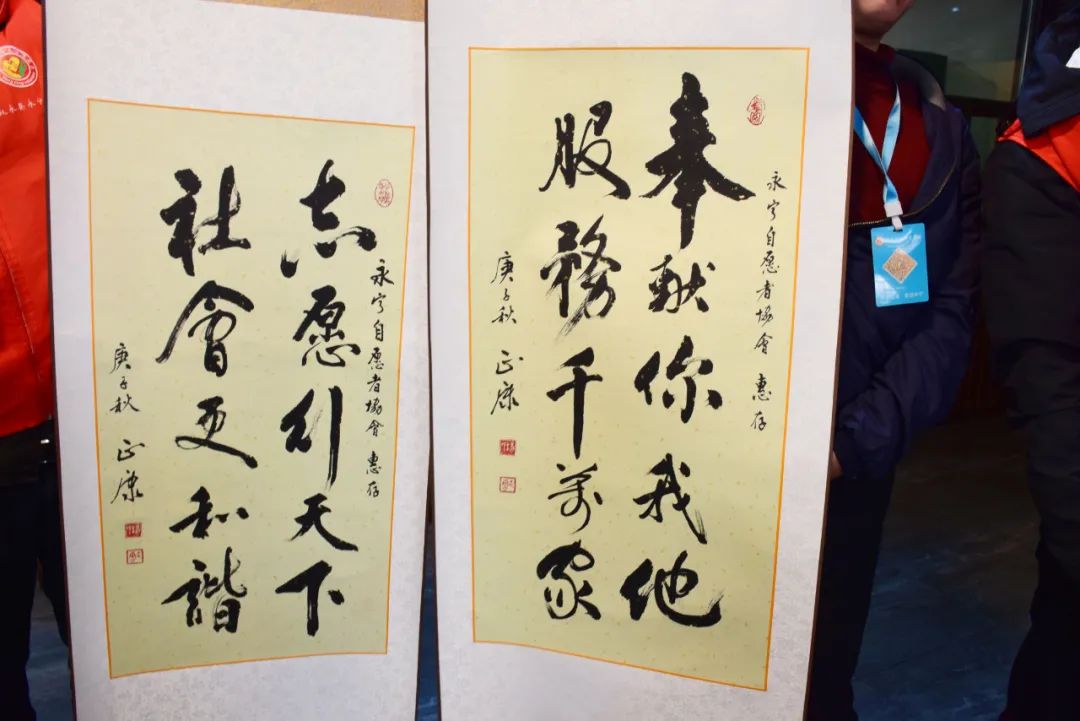 奉献你我他
服務千万家
永宁自愿者協會 惠存
庚子秋 正康
志愿行天下
社會更和諧
永宁自愿者協會 惠存
庚子秋 正康